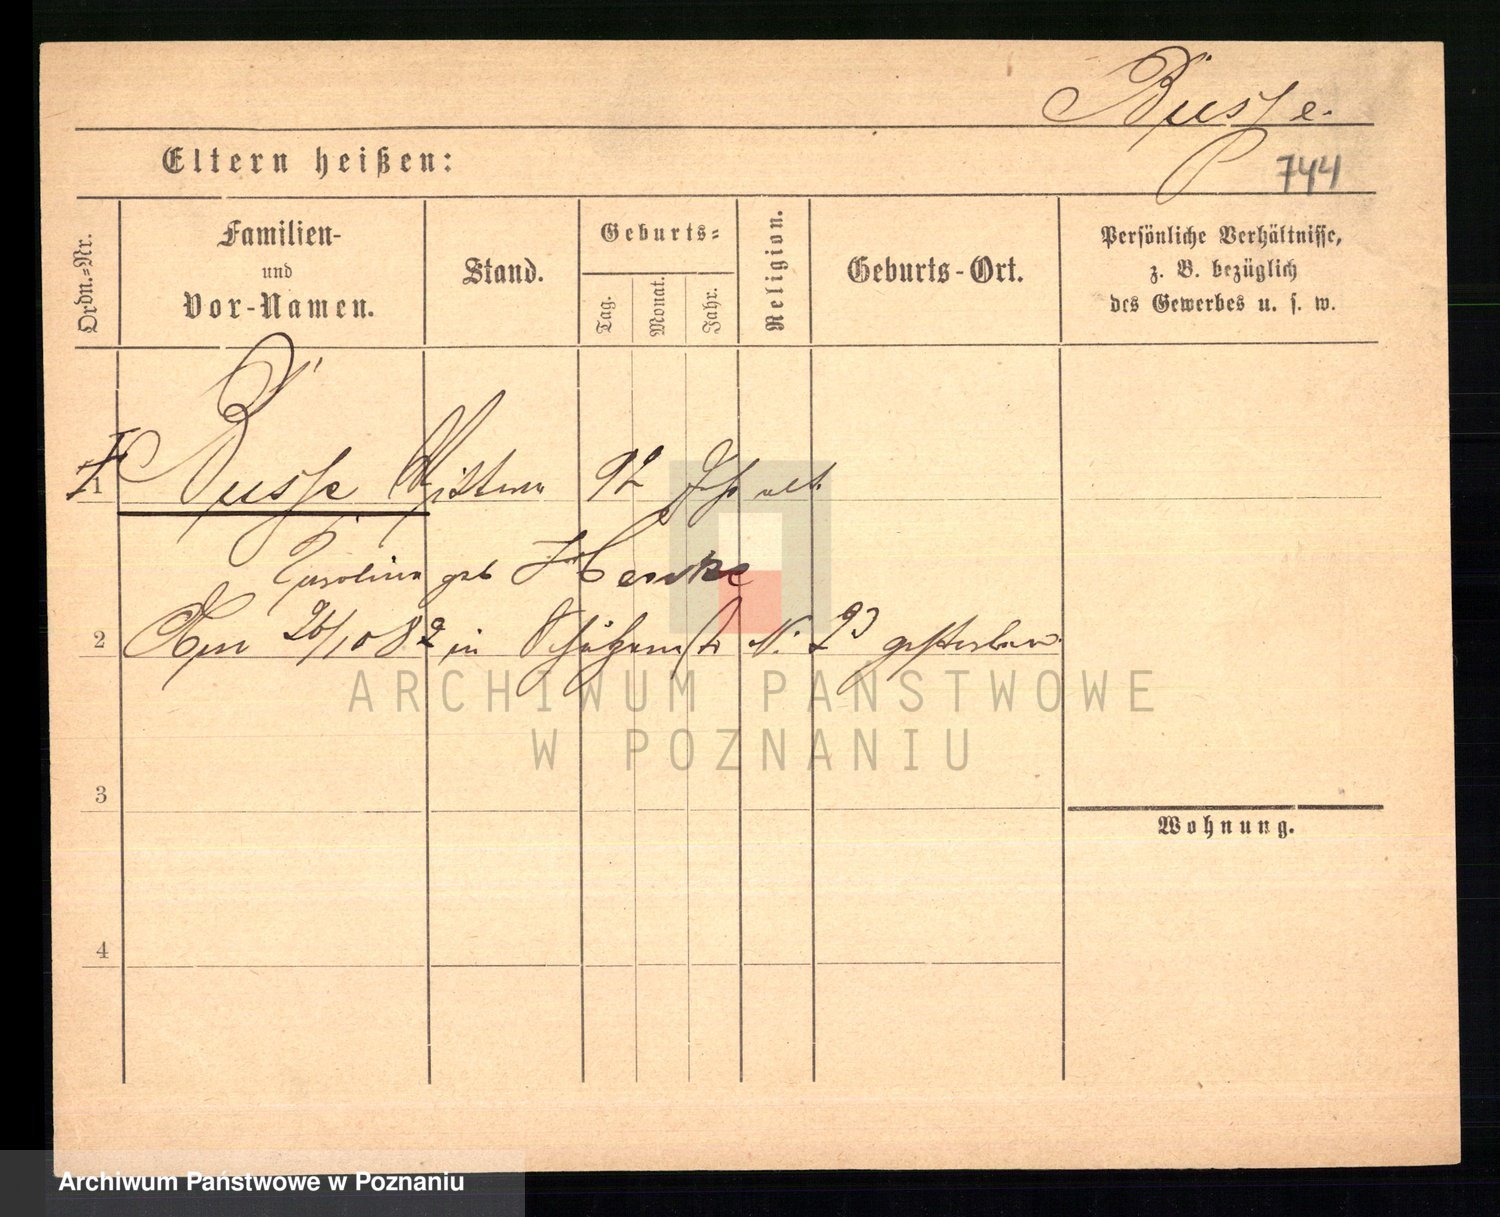 Büsse.
P 744
Eltern heißen:
Ordn.-Nr.
Familien- und Vor-Namen.
Stand.
Geburts-
Tag.
Monat.
Jahr.
Religion.
Geburts-Ort.
Persönliche Verhältnisse,
z. B. bezüglich
des Gewerbes u. s. w.
1 Büsse Wittwe 92 Jhr alt
geb
2 26/10 82 in Schützenstr N. 23 gestorben
3
Wohnung.
4
ARCHIWUM PAŃSTWOWE
W POZNANIU
Archiwum Państwowe w Poznaniu